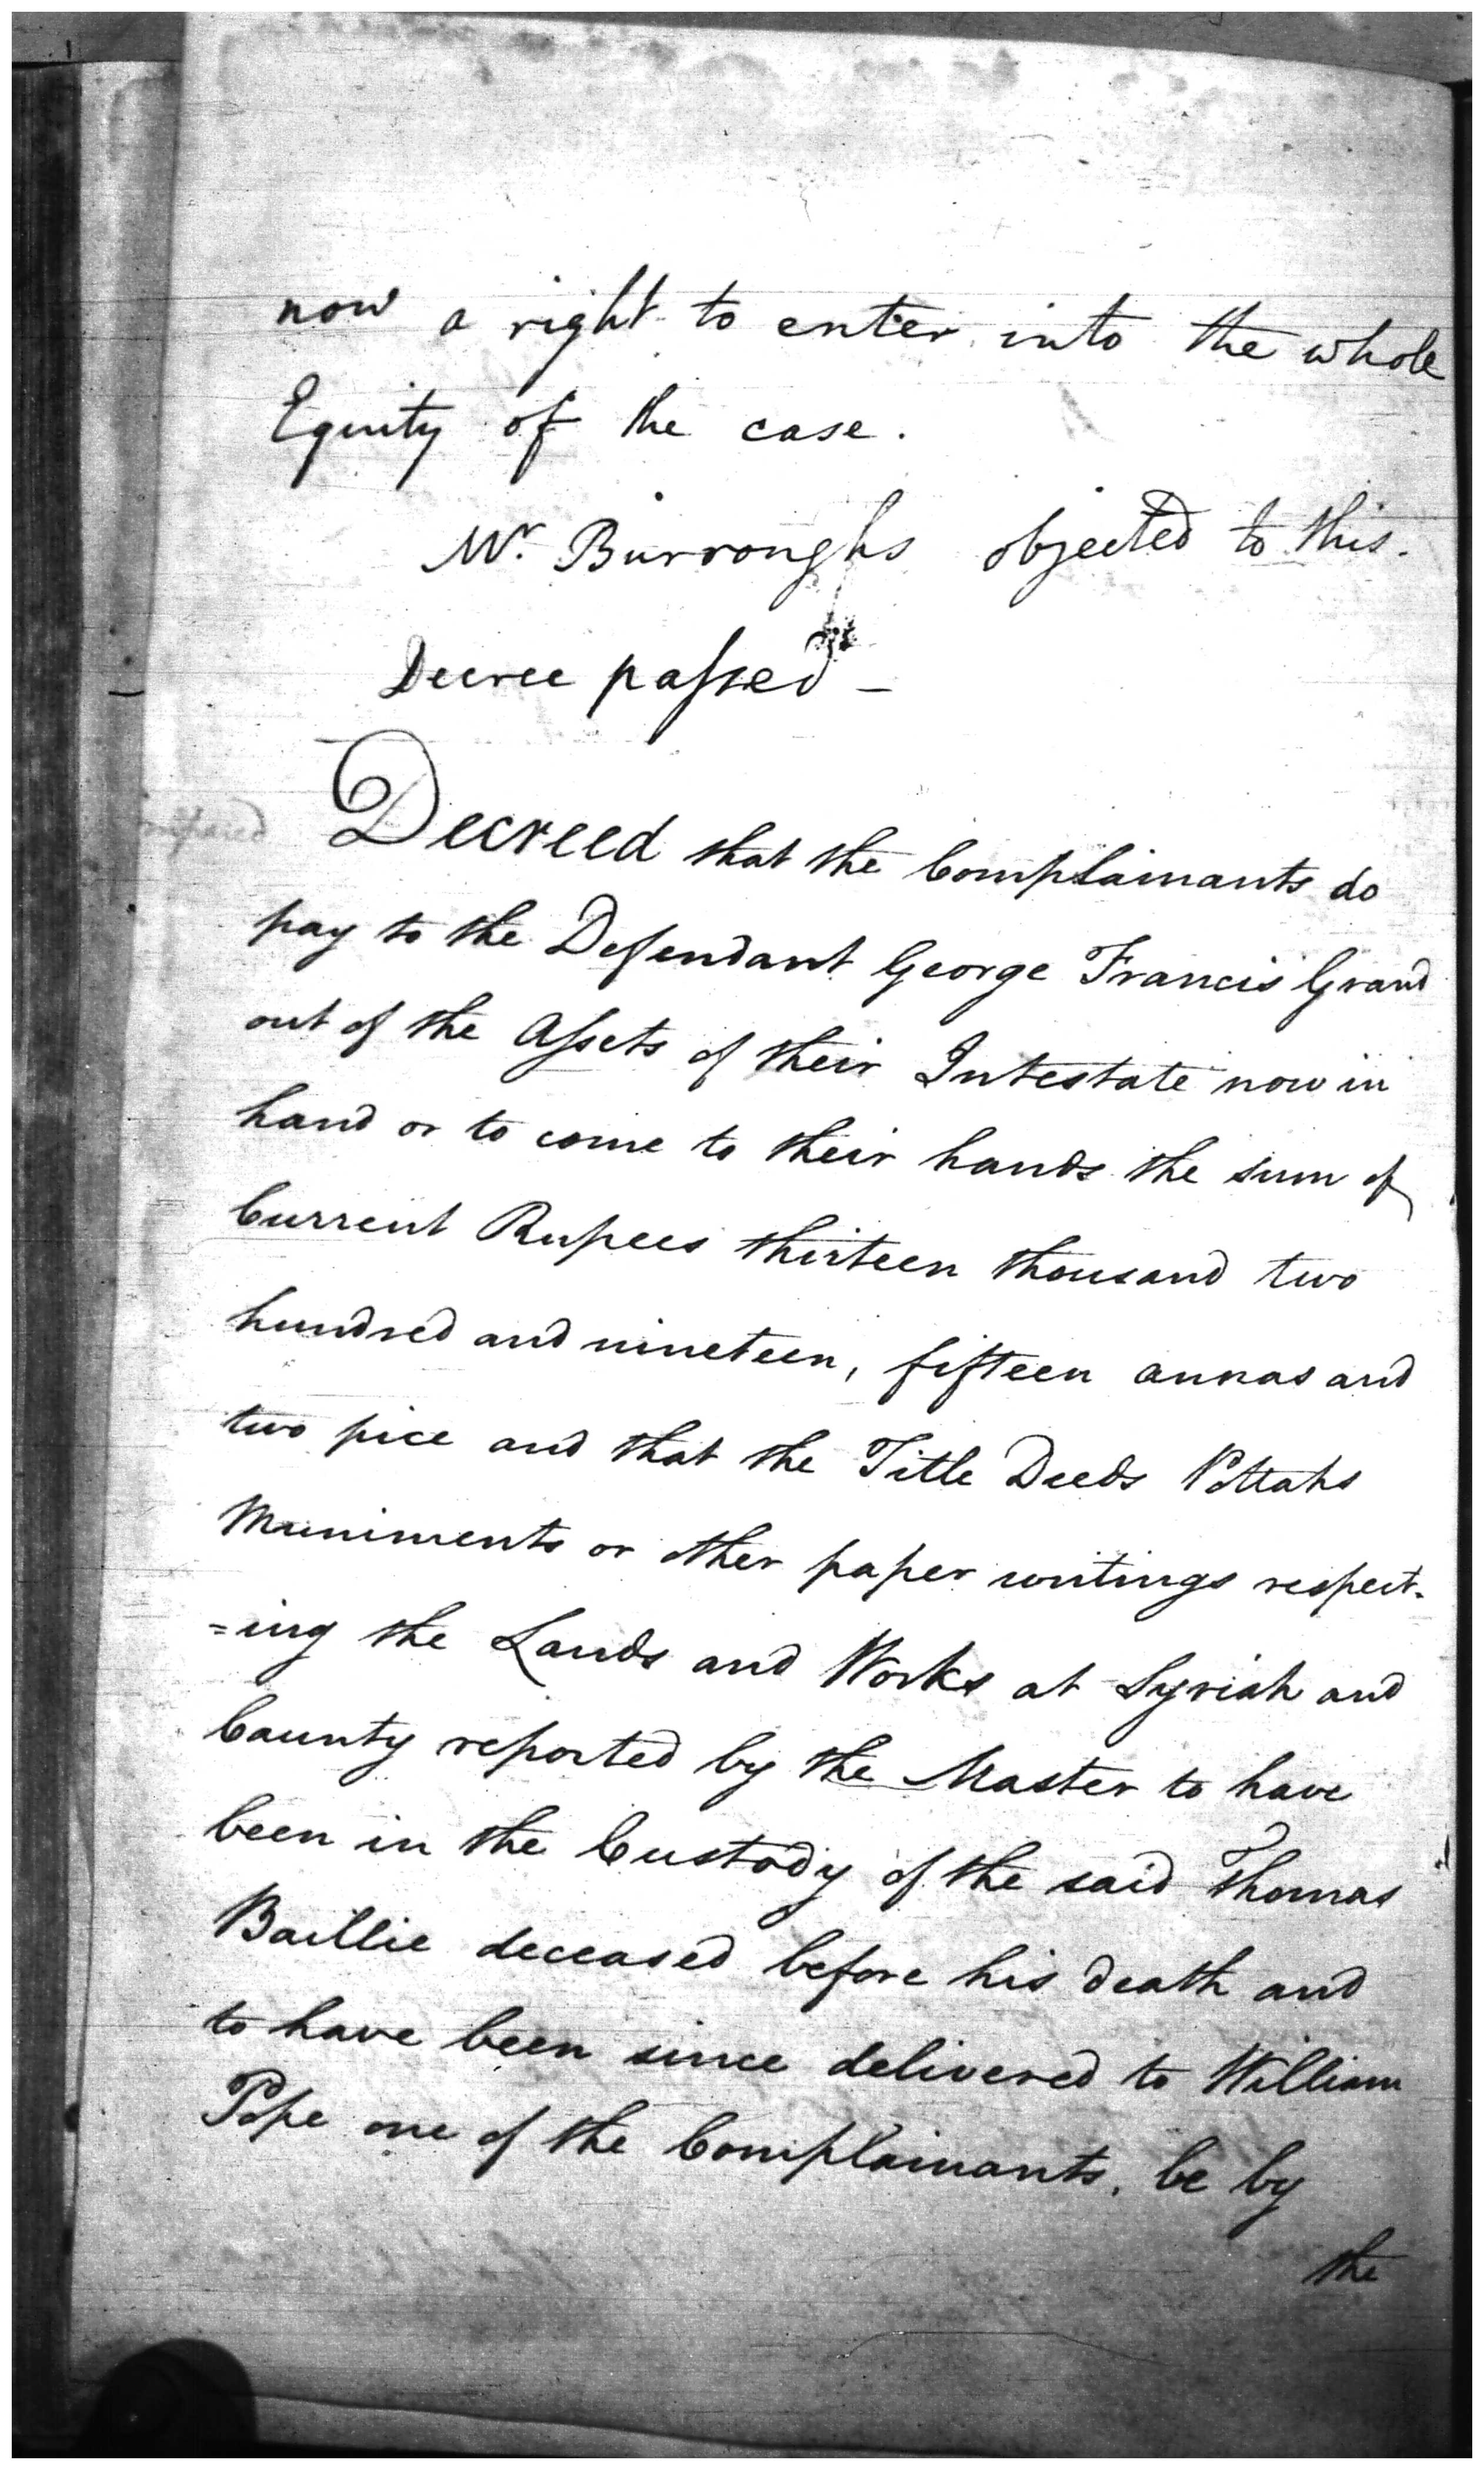 now a right to enter into the whole
Equity of the case.
Mr. Burroughs objected to this.
Decree passed —
Decreed that the Complainants do
pay to the Defendant George Francis Grand
out of the Assets of their Intestate now in
hand or to come to their hands the sum of
Current Rupees thirteen thousand two
hundred and nineteen, fifteen annas and
two pice and that the Title Deeds Pottahs
Muniments or other paper writings respect-
=ing the Lands and Works at Syriah and
County reported by the Master to have
been in the Custody of the said Thomas
Baillie deceased before his death and
to have been since delivered to William
Pope one of the Complainants, be by
the